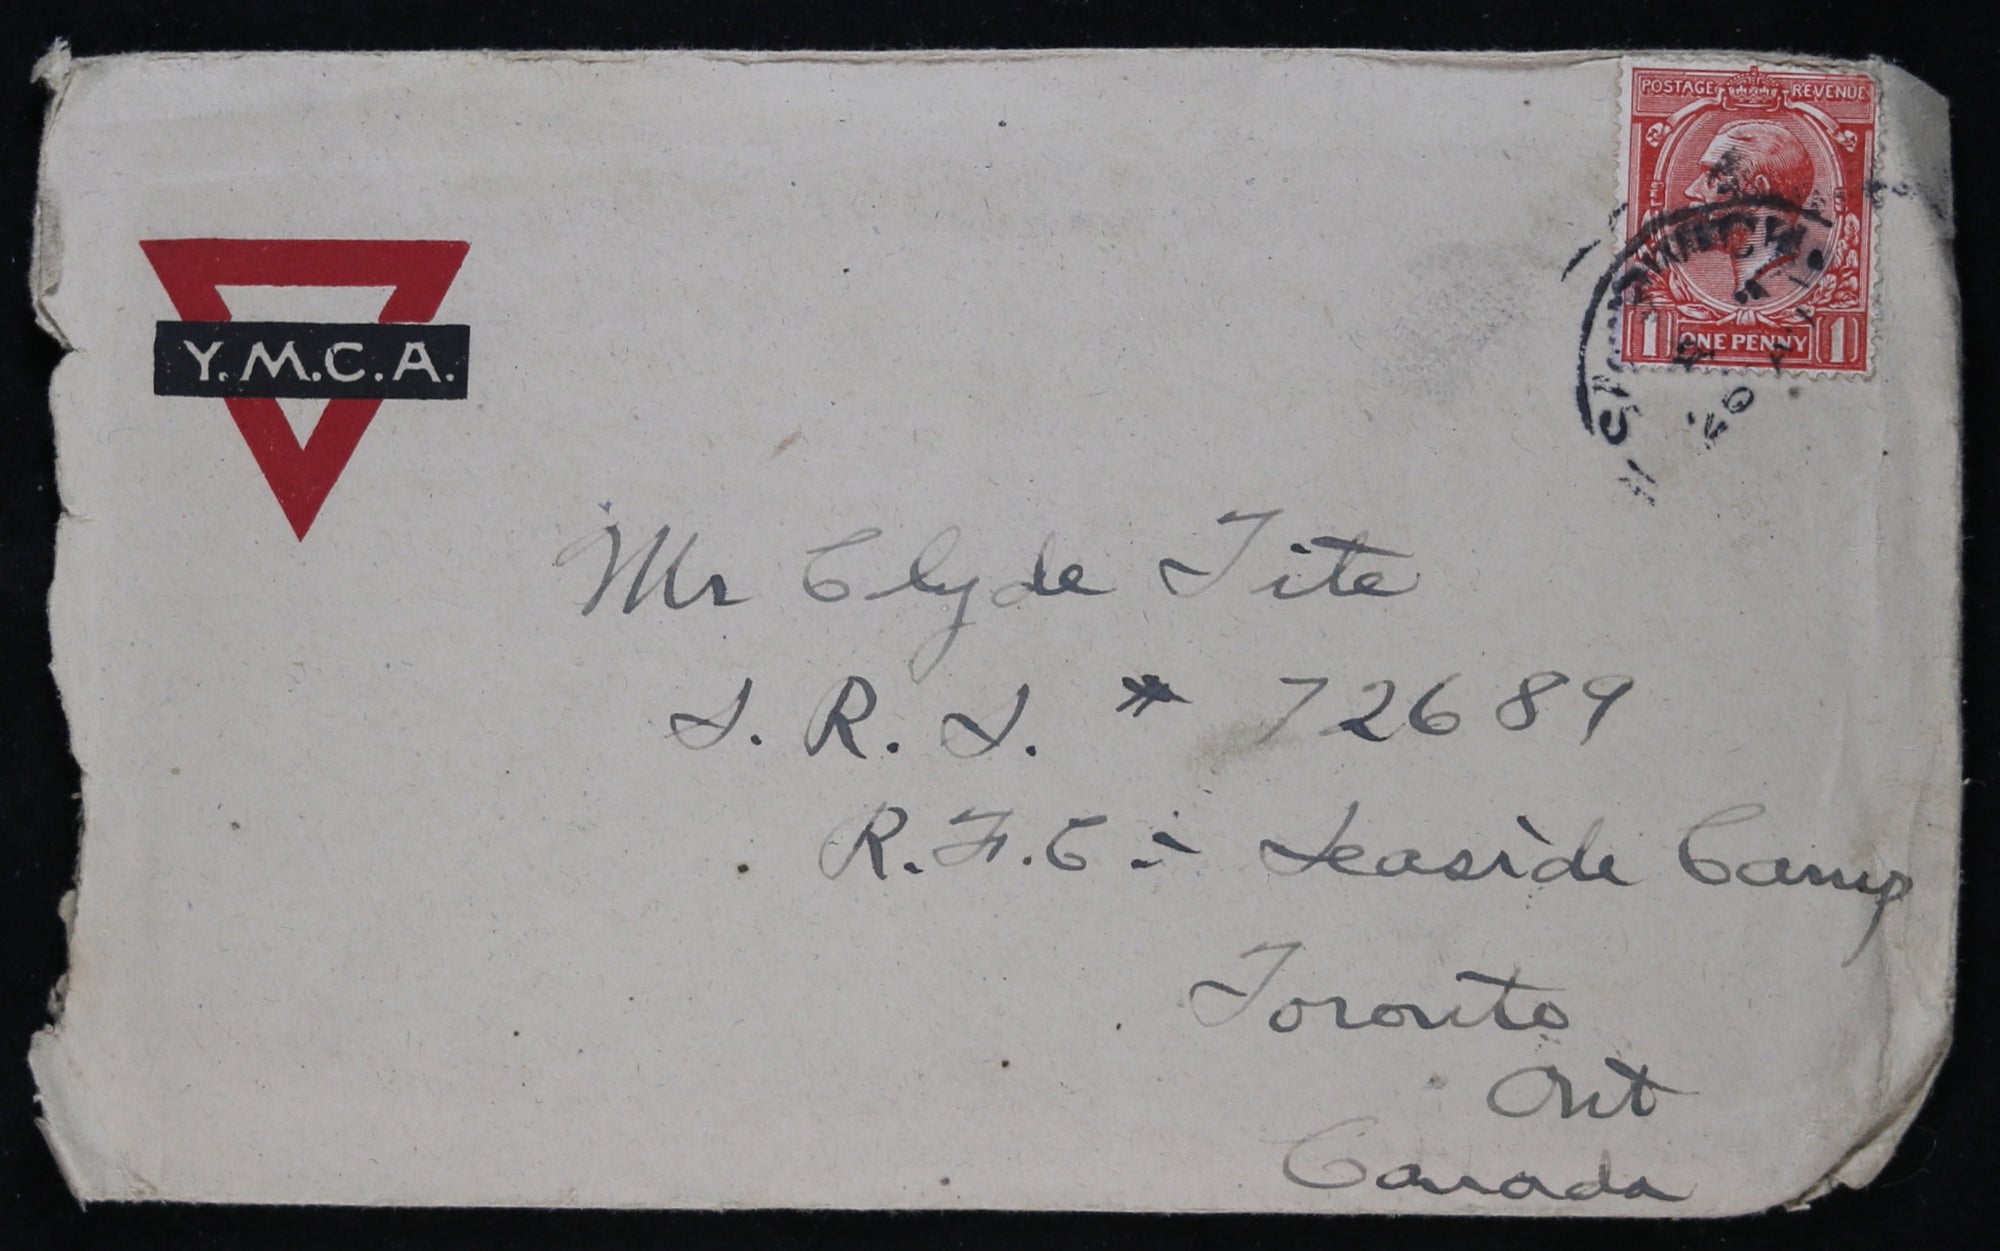 POSTAGE REVENUE
1 ONE PENNY 1
Y.M.C.A.
Mr Clyde Tite
S. R. S. # 72689
R.F.C - Leaside Camp
Toronto
Ont
Canada